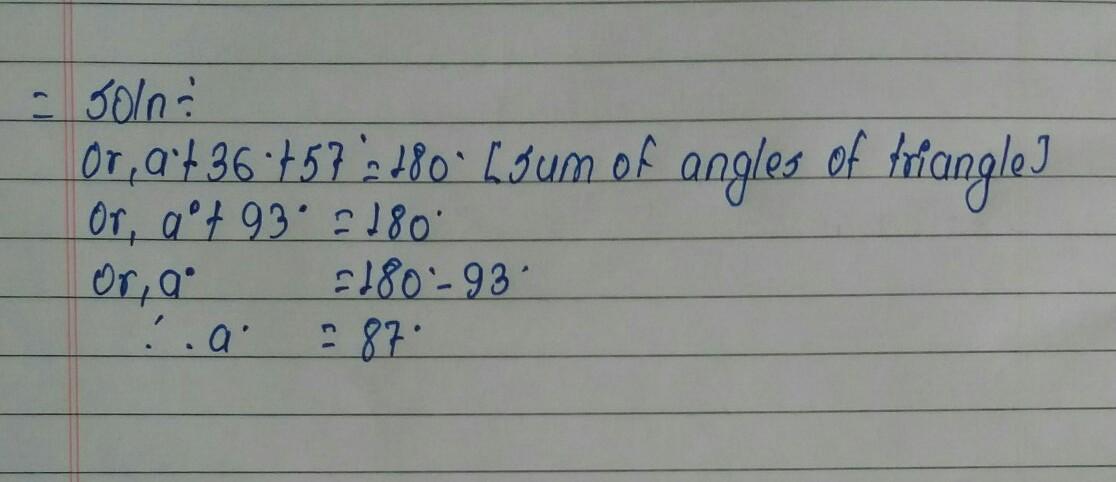 = Soln÷
Or, a°+36°+57°=180° [sum of angles of triangle]
Or, a°+93° =180°
Or, a° =180°-93°
∴ a° = 87°